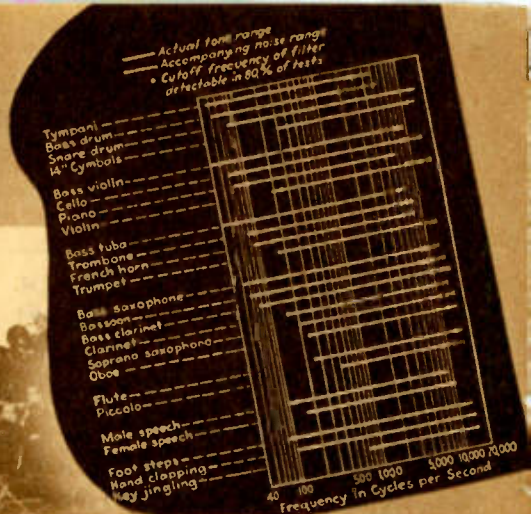 Actual tone range
Accompanying noise range
• Cutoff frequency of filter
detectable in 80% of tests
Tympani
Bass drum
Snare drum
14" Cymbals
Bass violin
Cello
Piano
Violin
Bass tuba
Trombone
French horn
Trumpet
Bass saxophone
Bassoon
Bass clarinet
Clarinet
Soprano saxophone
Oboe
Flute
Piccolo
Male speech
Female speech
Foot steps
Hand clapping
Key jingling
40 100 500 1,000 5,000 10,000 20,000
Frequency in Cycles per Second